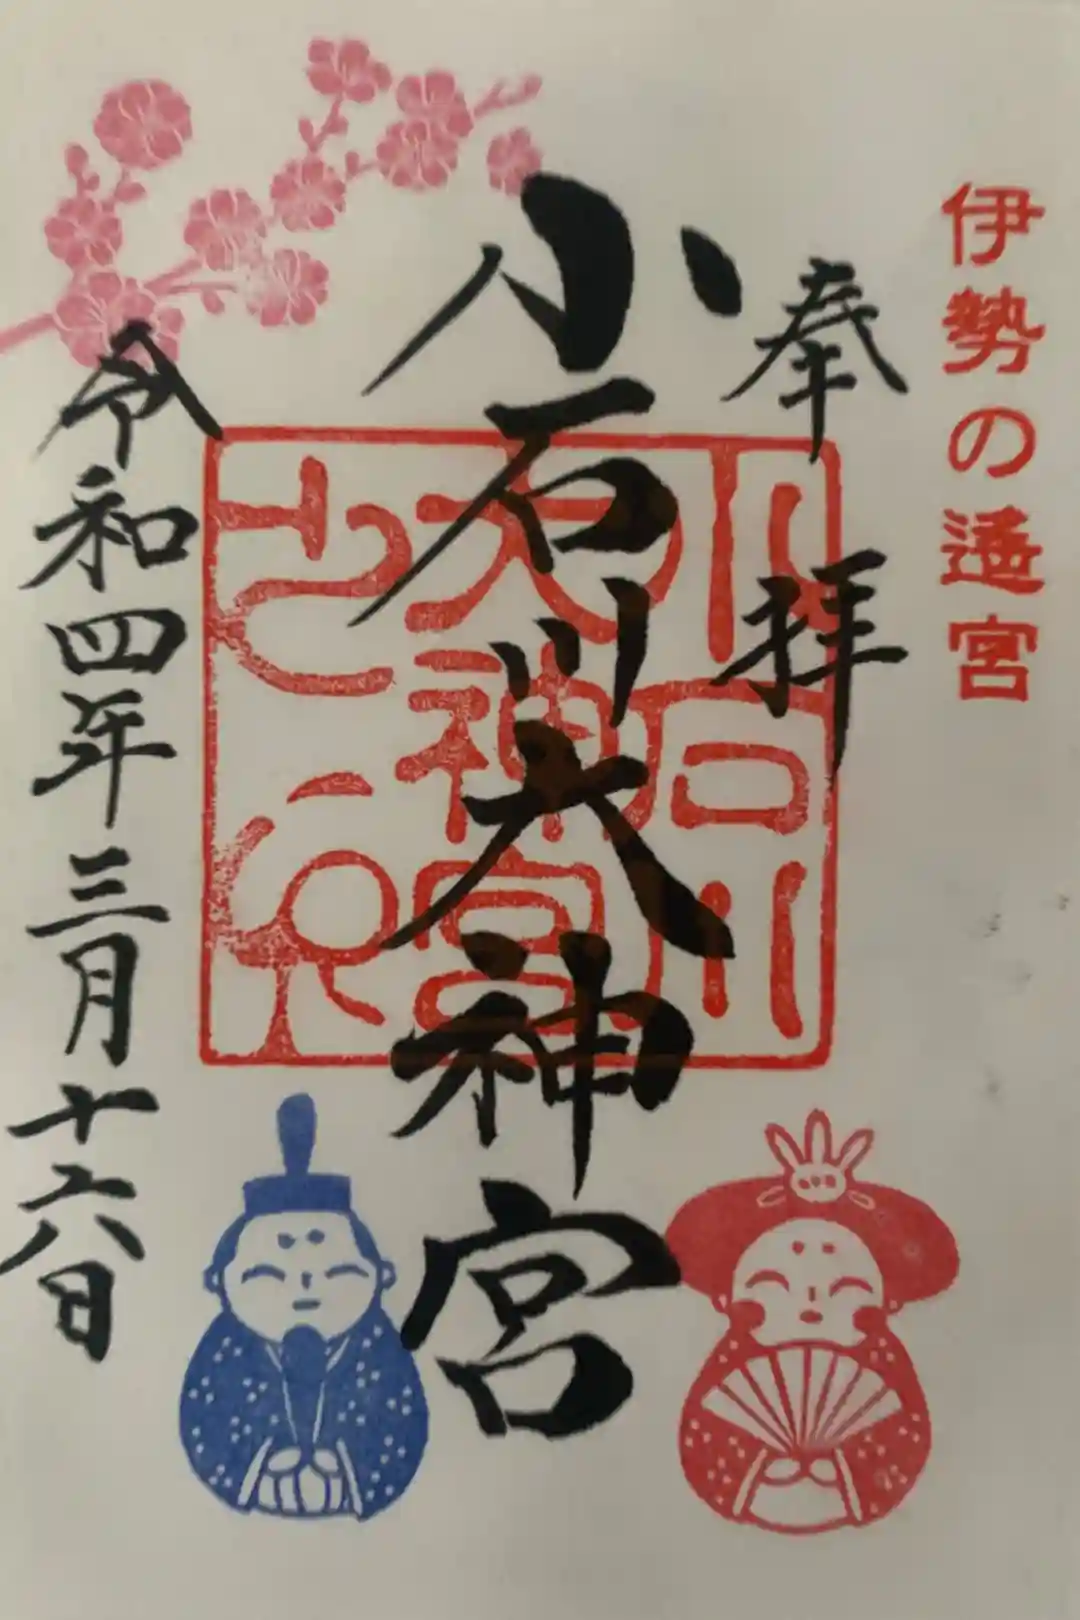 伊勢の遥宮
奉拝
小石川大神宮
小石川
大神宮
之印
令和四年三月十六日